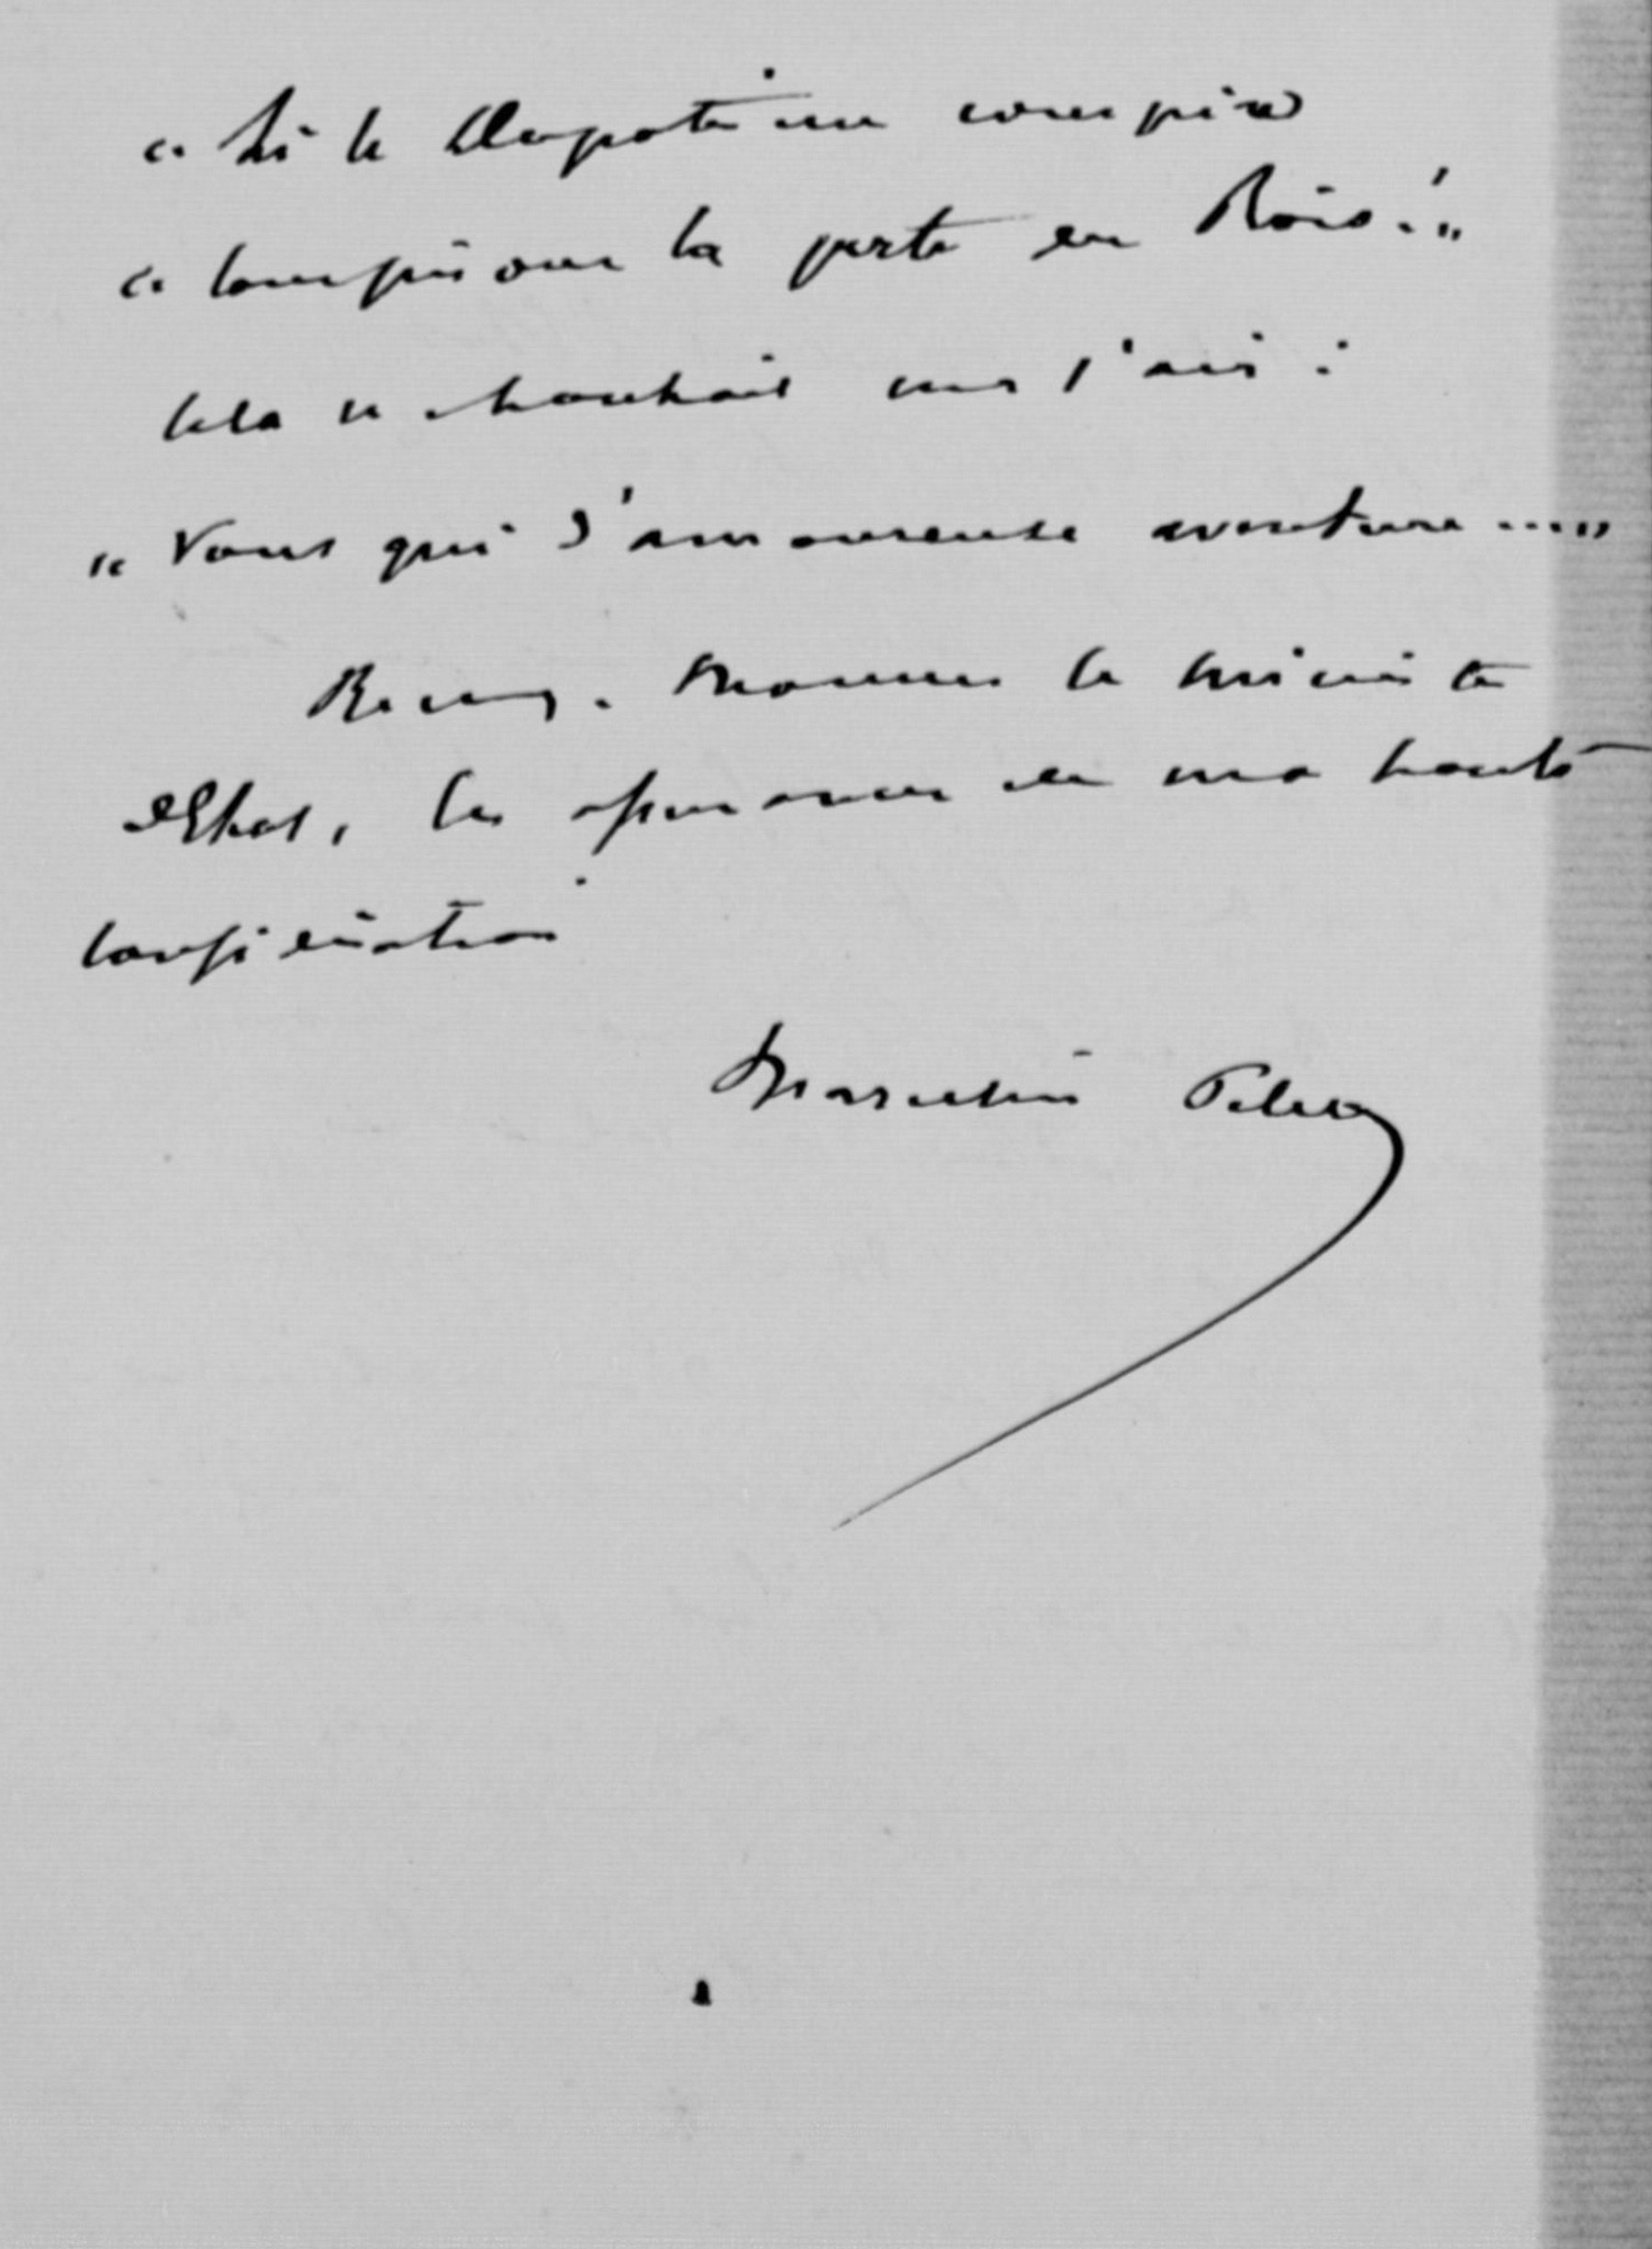 « Si le Despotisme conspire
« Conspirons la perte des Rois ! »
Cela se chantait sur l'air :
« Vous qui d'amoureuse aventure .... »
Recevez, Monsieur le Ministre
d'Etat, les assurances de ma haute
considération
Marcellin Pellet